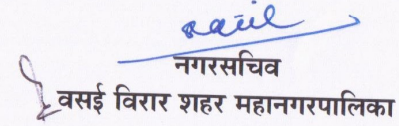 नगरसचिव
वसई विरार शहर महानगरपालिका